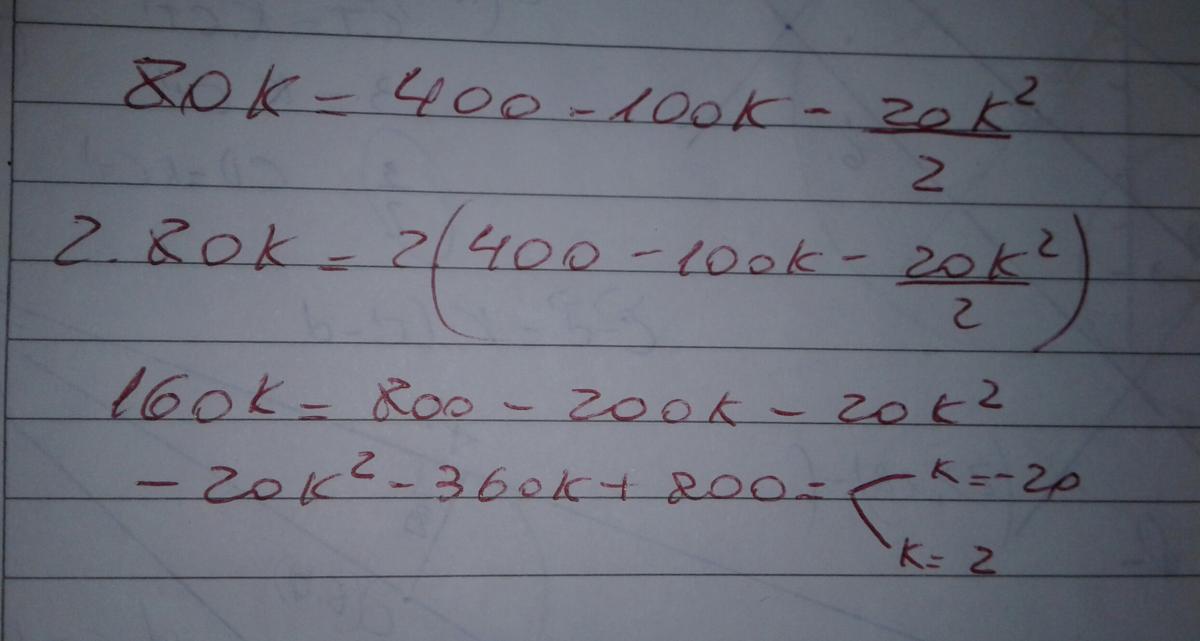 80K = 400 - 100K - 20K²/2
2 . 80K = 2(400 - 100K - 20K²/2)
160K = 800 - 200K - 20K²
- 20K² - 360K + 800 = K = -20
K = 2